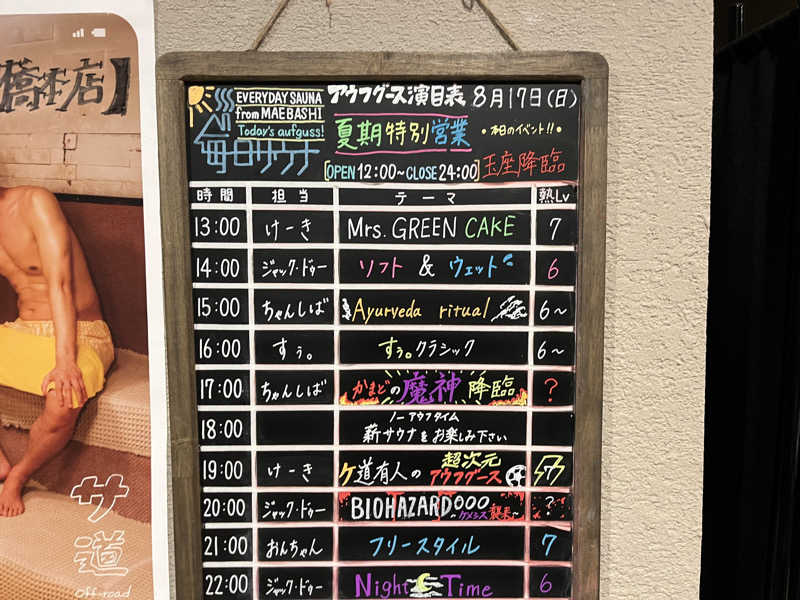 橋本店】
EVERYDAY SAUNA
from MAEBASHI
Today's aufguss!
毎日サウナ
アウフグース演目表 8月17日(日)
夏期特別営業 •本日のイベント!!•
[OPEN 12:00~CLOSE 24:00] 玉座降臨
時間 担当 テーマ 熱Lv
13:00 けーき Mrs. GREEN CAKE 7
14:00 ジャック・ドゥー ソフト & ウェット 6
15:00 ちゃんしば Ayurveda ritual 6~
16:00 すぅ。 すぅ。クラシック 6~
17:00 ちゃんしば かまどの魔神降臨 ?
18:00 ノーアウフタイム
薪サウナをお楽しみ下さい
19:00 けーき ケ道有人の超次元アウフグース 7
20:00 ジャック・ドゥー BIOHAZARD ~ケメシス襲来~ ?
21:00 おんちゃん フリースタイル 7
22:00 ジャック・ドゥー Night Time 6
サ道
Off-road